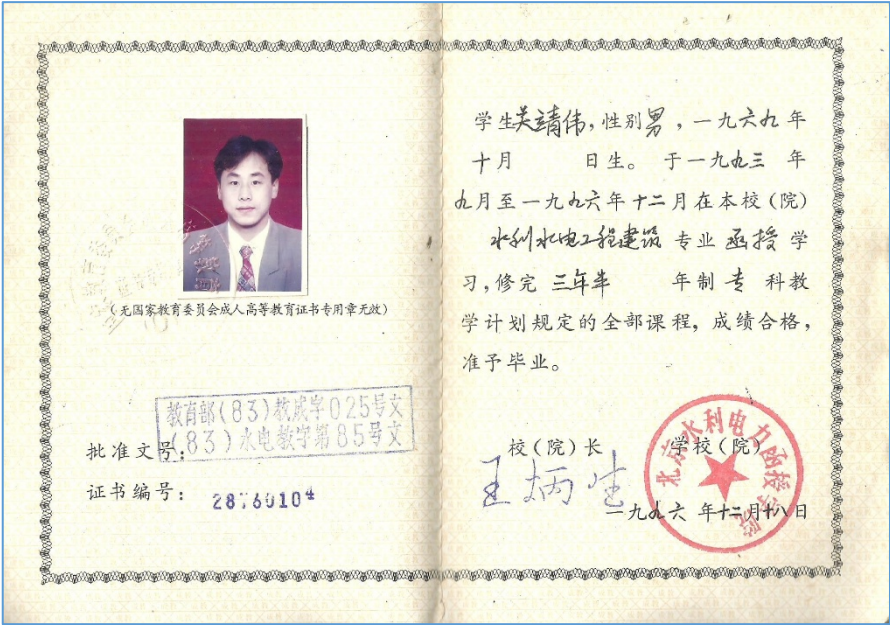 (无国家教育委员会成人高等教育证书专用章无效)
教育部(83)教成字025号文
(83)水电教字第85号文
批准文号:
证书编号: 28760104
学生吴靖伟,性别男,一九六九年
十月 日生。于一九九三 年
九月至一九九六年十二月在本校(院)
水利水电工程建筑 专业 函授 学
习,修完 三年半 年制 专 科教
学计划规定的全部课程,成绩合格,
准予毕业。
校(院)长 学校(院)
王炳生
北京水利电力函授学院
一九九六 年十二月十八日